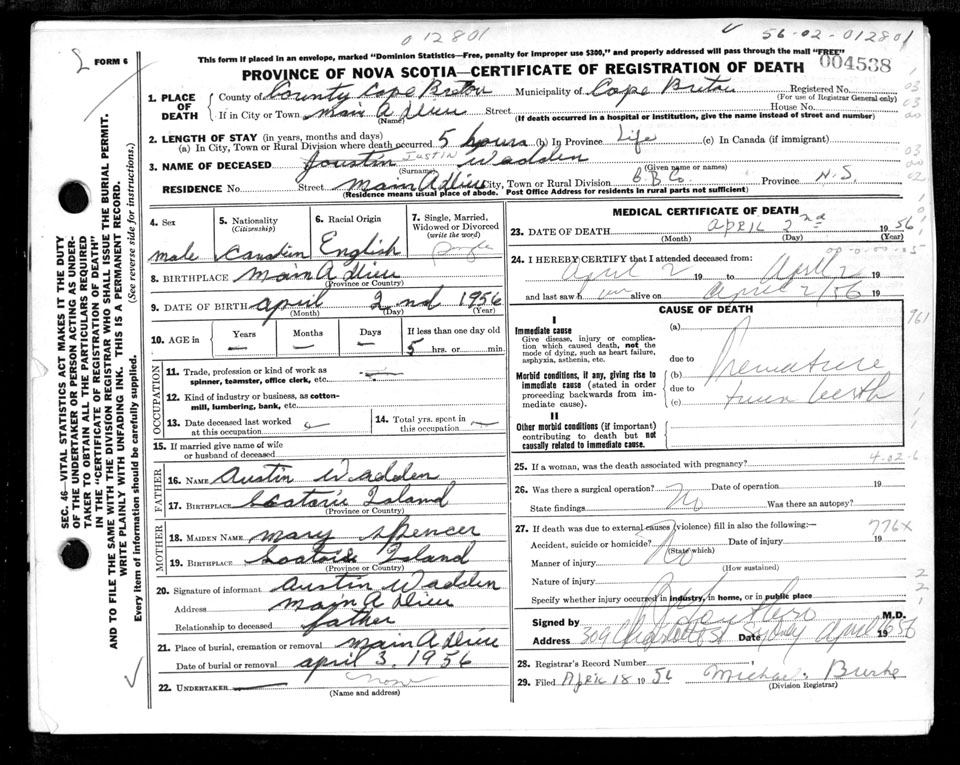 012801
56-02-012801
FORM 6
This form if placed in an envelope, marked "Dominion Statistics—Free, penalty for improper use $300," and properly addressed will pass through the mail "FREE"
PROVINCE OF NOVA SCOTIA—CERTIFICATE OF REGISTRATION OF DEATH
004538
1. PLACE OF DEATH { County of County Cape Breton Municipality of Cape Breton Registered No.
(For use of Registrar General only)
If in City or Town Main A Dieu Street House No.
(Name) (If death occurred in a hospital or institution, give the name instead of street and number)
2. LENGTH OF STAY (in years, months and days)
(a) In City, Town or Rural Division where death occurred 5 hours (b) In Province Life (c) In Canada (if immigrant)
3. NAME OF DECEASED Joustin JUSTIN Wadden
(Surname) (Given name or names)
RESIDENCE No. Street Main A Dieu City, Town or Rural Division C.B. Co. Province N.S
(Residence means usual place of abode. Post Office Address for residents in rural parts not sufficient)
4. Sex
male
5. Nationality
(Citizenship)
Canadien
6. Racial Origin
English
7. Single, Married, Widowed or Divorced
(write the word)
single
8. BIRTHPLACE Main A Dieu
(Province or Country)
9. DATE OF BIRTH april 2nd 1956
(Month) (Day) (Year)
10. AGE in
Years Months Days If less than one day old
— — — 5 hrs. or min.
OCCUPATION
11. Trade, profession or kind of work as spinner, teamster, office clerk, etc. —
12. Kind of industry or business, as cotton-mill, lumbering, bank, etc.
13. Date deceased last worked at this occupation
14. Total yrs. spent in this occupation —
15. If married give name of wife or husband of deceased
FATHER
16. NAME Austin Wadden
17. BIRTHPLACE Scatarie Island
(Province or Country)
MOTHER
18. MAIDEN NAME Mary Spencer
19. BIRTHPLACE Scatarie Island
(Province or Country)
20. Signature of informant Austin Wadden
Address Main A Dieu
Relationship to deceased father
21. Place of burial, cremation or removal Main A Dieu
Date of burial or removal april 3. 1956
22. UNDERTAKER none
(Name and address)
MEDICAL CERTIFICATE OF DEATH
23. DATE OF DEATH APRIL 2nd 1956
(Month) (Day) (Year)
24. I HEREBY CERTIFY that I attended deceased from:
April 2 19 to April 2 19
and last saw h im alive on April 2/56 19
CAUSE OF DEATH
I
Immediate cause
Give disease, injury or complication which caused death, not the mode of dying, such as heart failure, asphyxia, asthenia, etc.
Morbid conditions, if any, giving rise to immediate cause (stated in order proceeding backwards from immediate cause).
II
Other morbid conditions (if important) contributing to death but not causally related to immediate cause.
(a)
due to
(b) Premature
due to
(c) twin birth
761
25. If a woman, was the death associated with pregnancy?
4-02-6
26. Was there a surgical operation? No Date of operation 19
State findings Was there an autopsy?
27. If death was due to external causes (violence) fill in also the following:—
776x
Accident, suicide or homicide? No Date of injury 19
(State which)
Manner of injury
(How sustained)
Nature of injury
Specify whether injury occurred in industry, in home, or in public place
Signed by M.D.
Address 309 Charlotte St Sydney Date April 1956
28. Registrar's Record Number
29. Filed APRIL 18 1956 Michael Burke
(Division Registrar)
SEC. 46—VITAL STATISTICS ACT MAKES IT THE DUTY
OF THE UNDERTAKER OR PERSON ACTING AS UNDER-
TAKER TO OBTAIN ALL THE PARTICULARS REQUIRED
IN THE "CERTIFICATE OF REGISTRATION OF DEATH"
AND TO FILE THE SAME WITH THE DIVISION REGISTRAR WHO SHALL ISSUE THE BURIAL PERMIT.
WRITE PLAINLY WITH UNFADING INK. THIS IS A PERMANENT RECORD.
Every item of information should be carefully supplied. (See reverse side for instructions.)